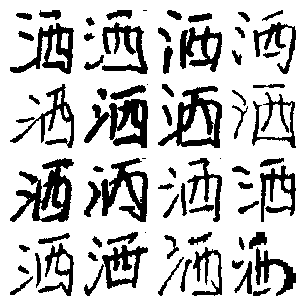 洒洒洒洒
洒洒洒洒
洒洒洒洒
洒洒洒洒